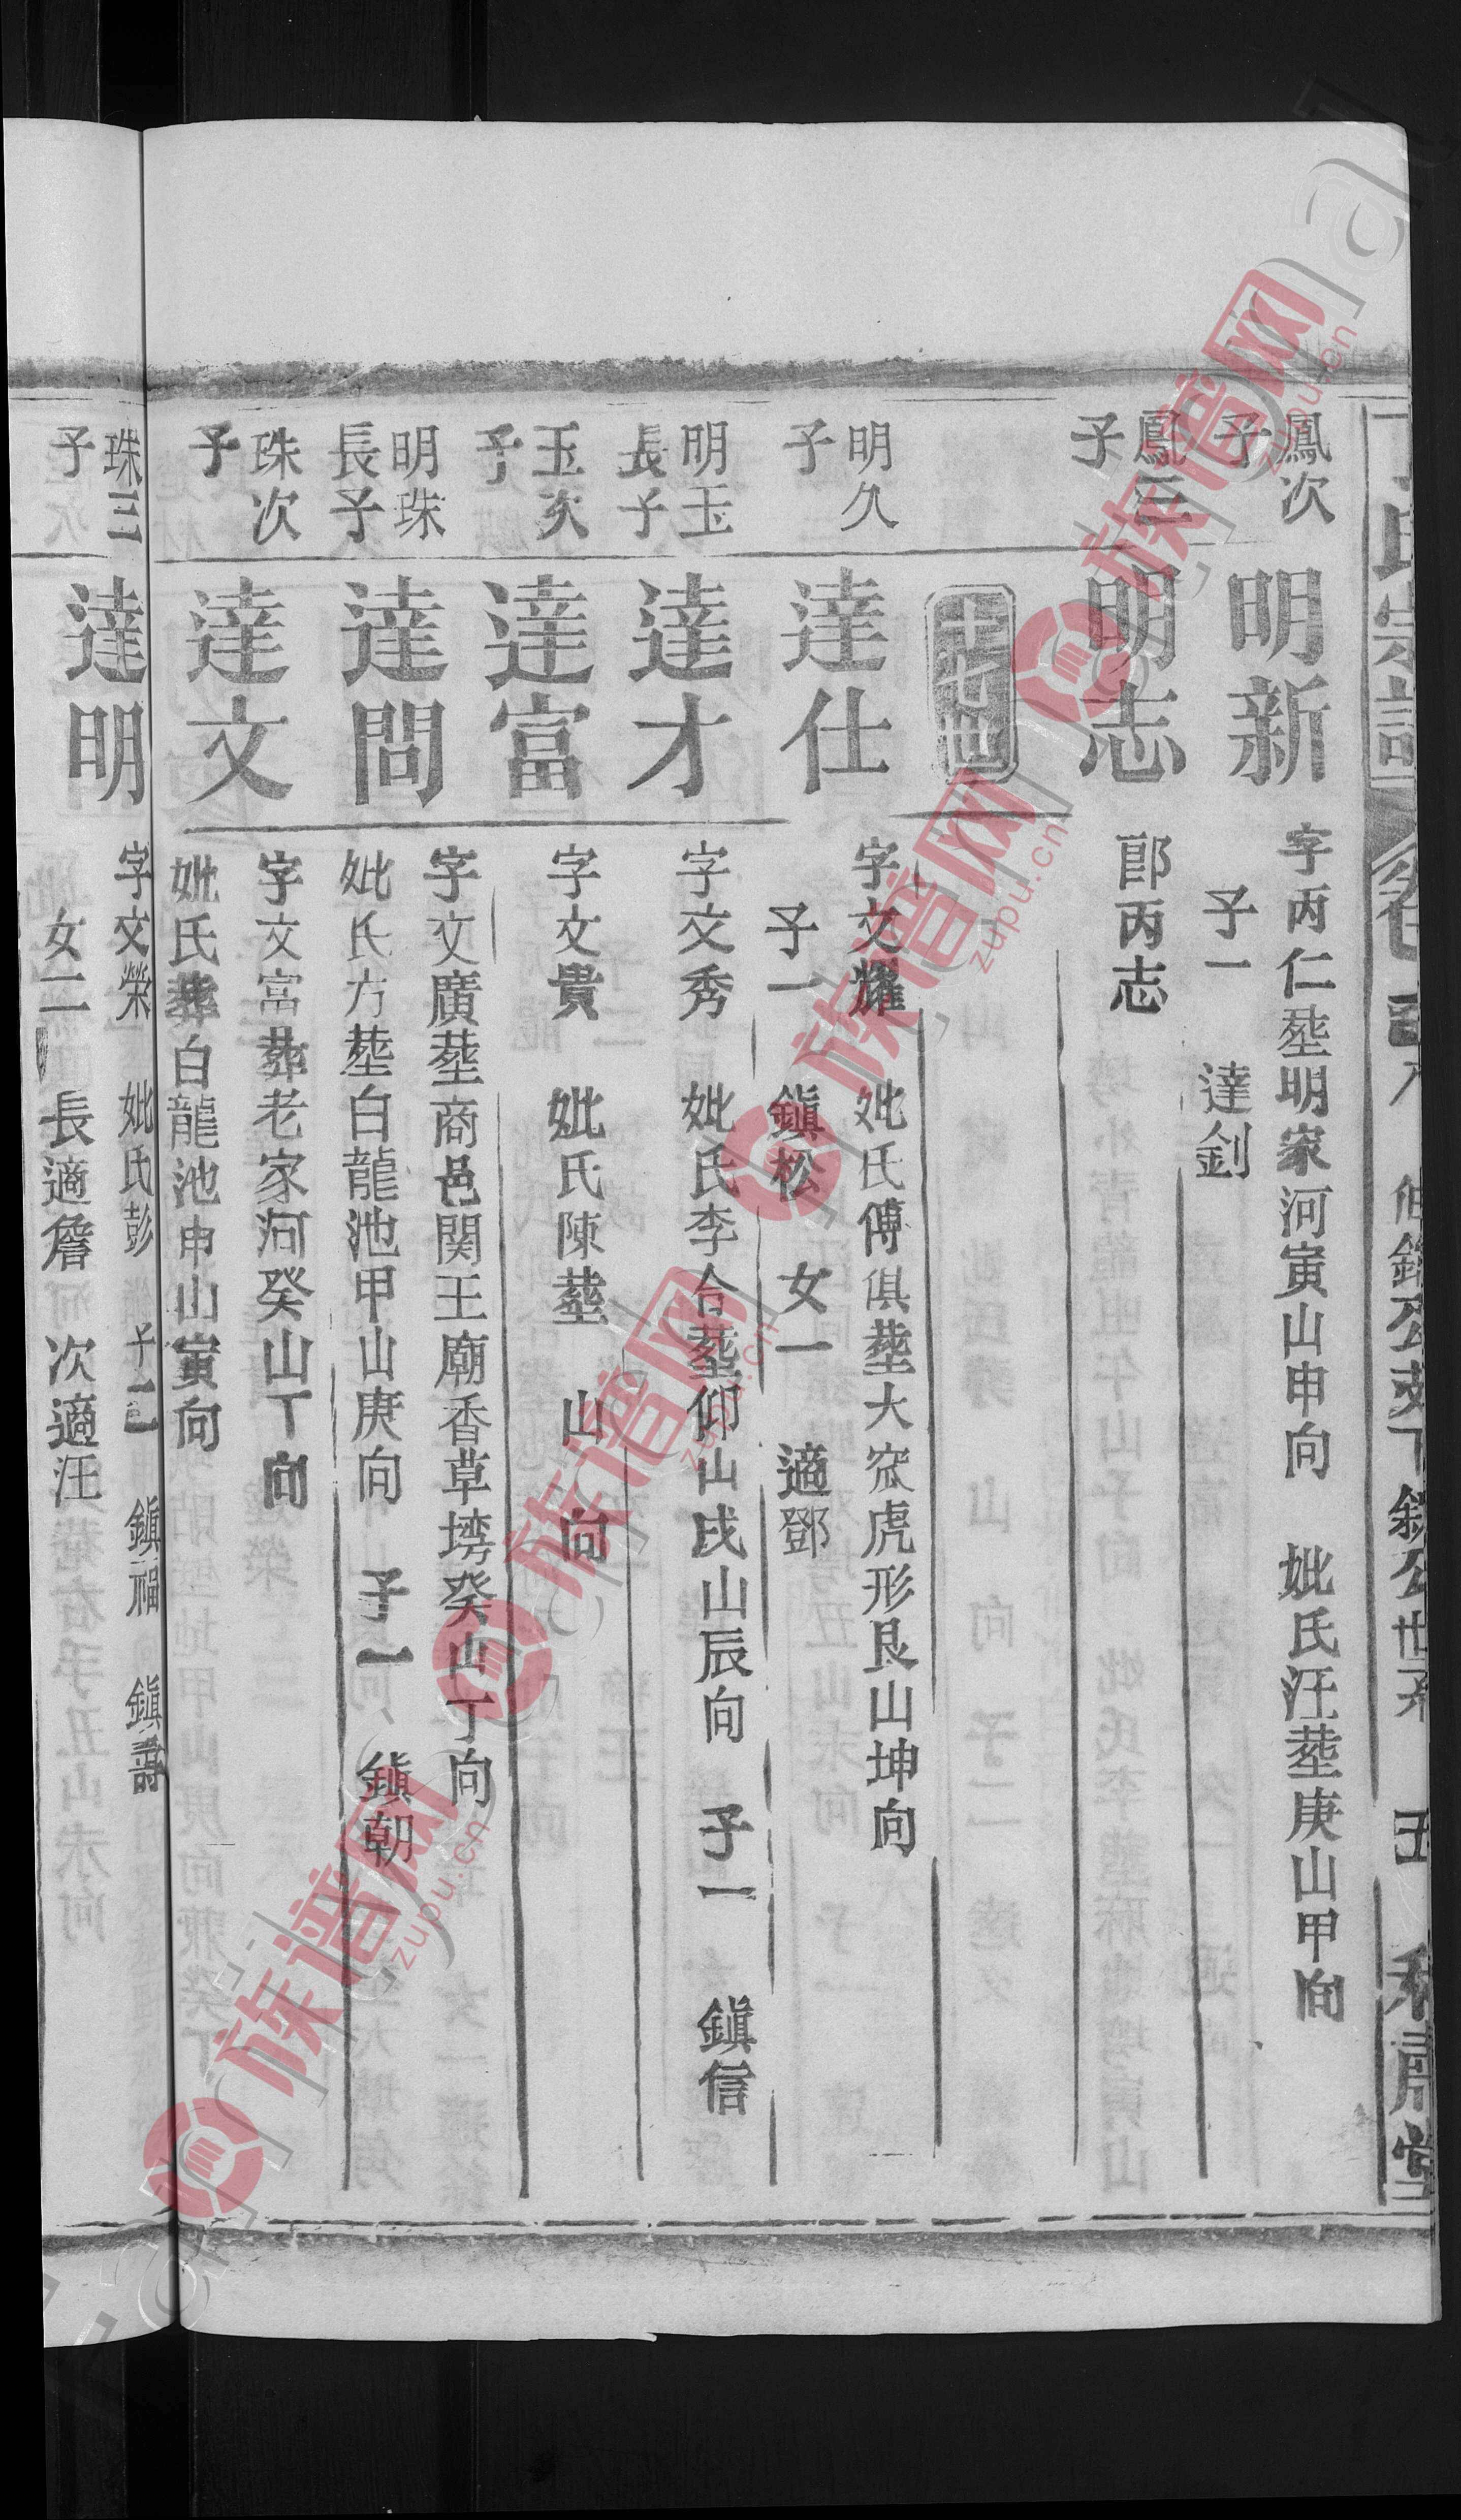 氏宗譜
五
鳳次子
明新
字丙仁塟明家河寅山申向 妣氏汪塟庚山甲向
子一 達釗
鳳三子
明志
郎丙志
十七世
明久子
達仕
字文耀 妣氏傅俱塟大窊虎形艮山坤向
子一 鎭松 女一 適鄧
明玉長子
達才
字文秀 妣氏李合塟仰山戌山辰向 子一 鎭信
玉次子
達富
字文貴 妣氏陳塟 山 向
明珠長子
達問
字文廣塟商邑関王廟香草塆癸山丁向
妣氏方塟白龍池甲山庚向 子一 鎭朝
珠次子
達文
字文富葬老家河癸山丁向
妣氏葬白龍池申山寅向
珠三子
達明
字文榮 妣氏彭 子二 鎭福 鎭壽
女二 長適詹 次適汪
族谱网
zupu.cn
族谱网
zupu.cn
族谱网
zupu.cn
族谱网
zupu.cn